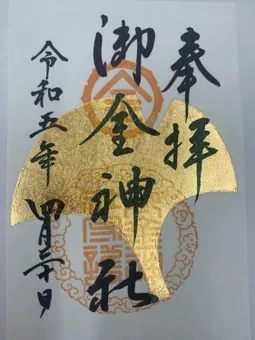 奉拝
御金神社
令和五年 四月三十日